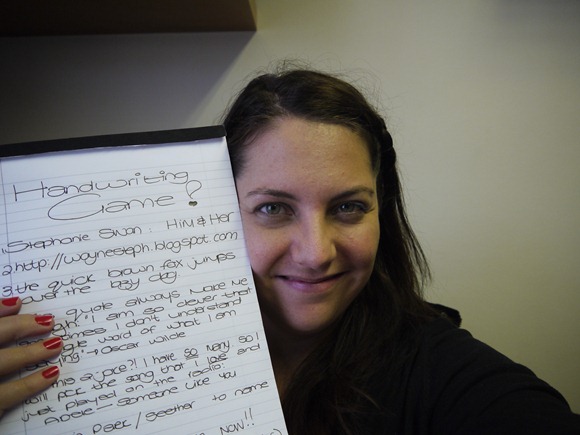 Handwriting
Game!
1. Stephanie Swan : Him & Her
2. http://waynesteph.blogspot.com
3. the quick brown fox jumps
over the lazy dog
quote always make me
laugh " I am so clever that
sometimes I don't understand
single word of what I am
saying" → Oscar Wilde
this a joke?!! I have so many so I
will pick the song that I love and
just played on the radio:
Adele - Someone Like You
Peek / Seether to name
NOW!!